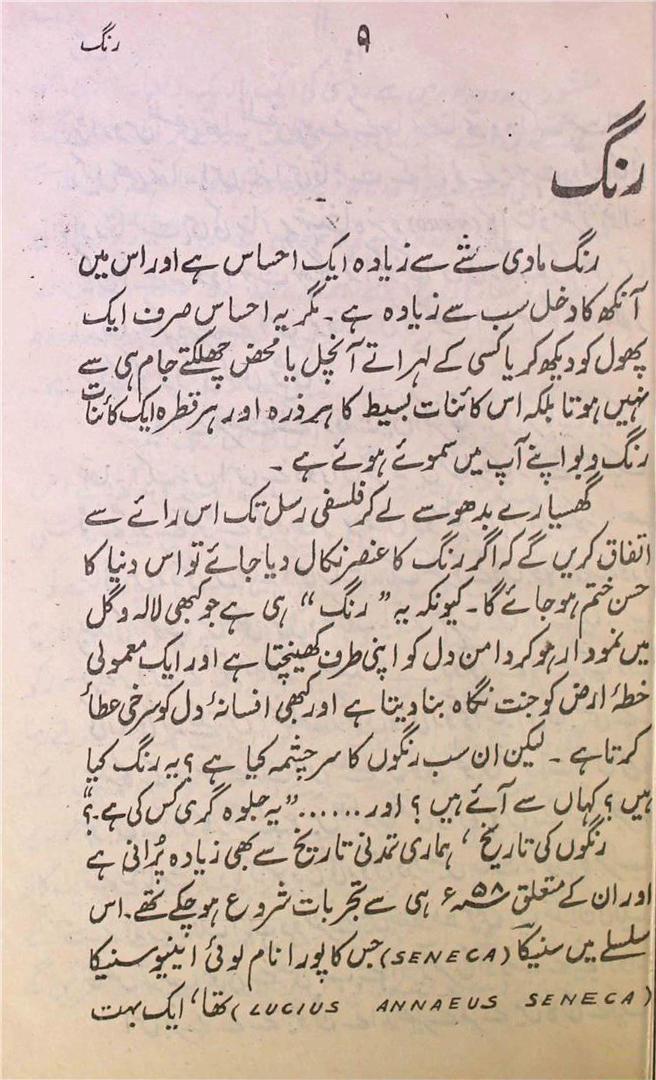 رنگ
۹
رنگ
رنگ مادی شئے سے زیادہ ایک احساس ہے اور اس میں
آنکھ کا دخل سب سے زیادہ ہے ۔ مگر یہ احساس صرف ایک
پھول کو دیکھ کر یا کسی کے لہراتے آنچل یا محض چھلکتے جام ہی سے
نہیں ہوتا بلکہ اس کائنات بسیط کا ہر ذرہ اور ہر قطرہ ایک کائنات
رنگ و بو اپنے آپ میں سموئے ہوئے ہے ۔
گھسیارے بدھو سے لے کر فلسفی رسل تک اس رائے سے
اتفاق کریں گے کہ اگر رنگ کا عنصر نکال دیا جائے تو اس دنیا کا
حسن ختم ہو جائے گا ۔ کیونکہ یہ ” رنگ “ ہی ہے جو کبھی لالہ و گل
میں نمودار ہو کر دامن دل کو اپنی طرف کھینچتا ہے اور ایک معمولی
خطۂ ارض کو جنت نگاہ بنا دیتا ہے اور کبھی افسانۂ دل کو سرخی عطأ
کرتا ہے ۔ لیکن ان سب رنگوں کا سرچشمہ کیا ہے ؟ یہ رنگ کیا
ہیں ؟ کہاں سے آئے ہیں ؟ اور ...... ” یہ جلوہ گری کس کی ہے ۔؟“
رنگوں کی تاریخ ، ہماری تمدنی تاریخ سے بھی زیادہ پُرانی ہے
اور ان کے متعلق ۵۸؁ء ہی سے تجربات شروع ہو چکے تھے ۔ اس
سلسلے میں سنیکا (SENECA) جس کا پورا نام لوئی اینیو سنیکا
(LUCIUS ANNAEUS SENECA) تھا ، ایک بہت